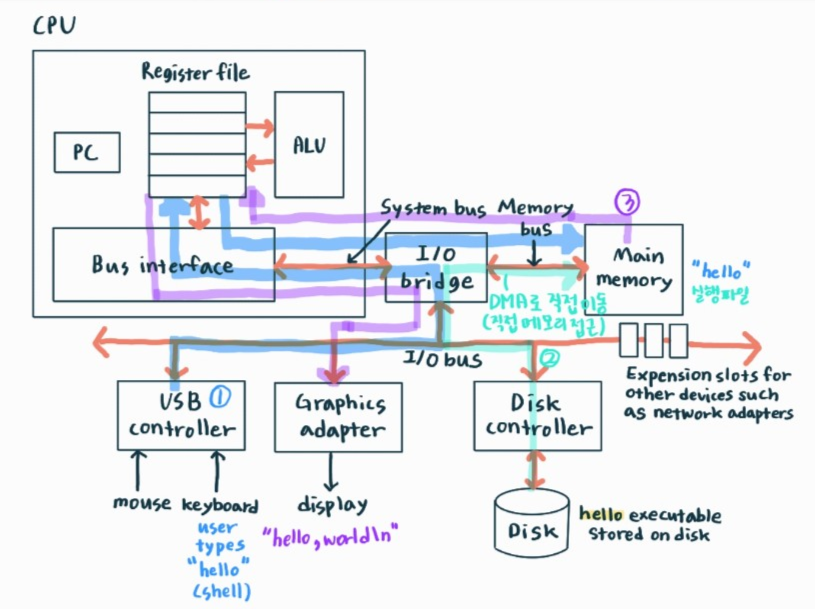 CPU
Register file
PC
ALU
System bus
Memory
bus
③
Bus interface
I/O
bridge
Main
memory
"hello"
실행파일
DMA로 직접 이동
(직접 메모리 접근)
I/O bus
②
Expension slots for
other devices such
as network adapters
USB ①
controller
Graphics
adapter
Disk
controller
mouse
keyboard
display
user
types
"hello"
(shell)
"hello, world\n"
Disk
hello executable
stored on disk